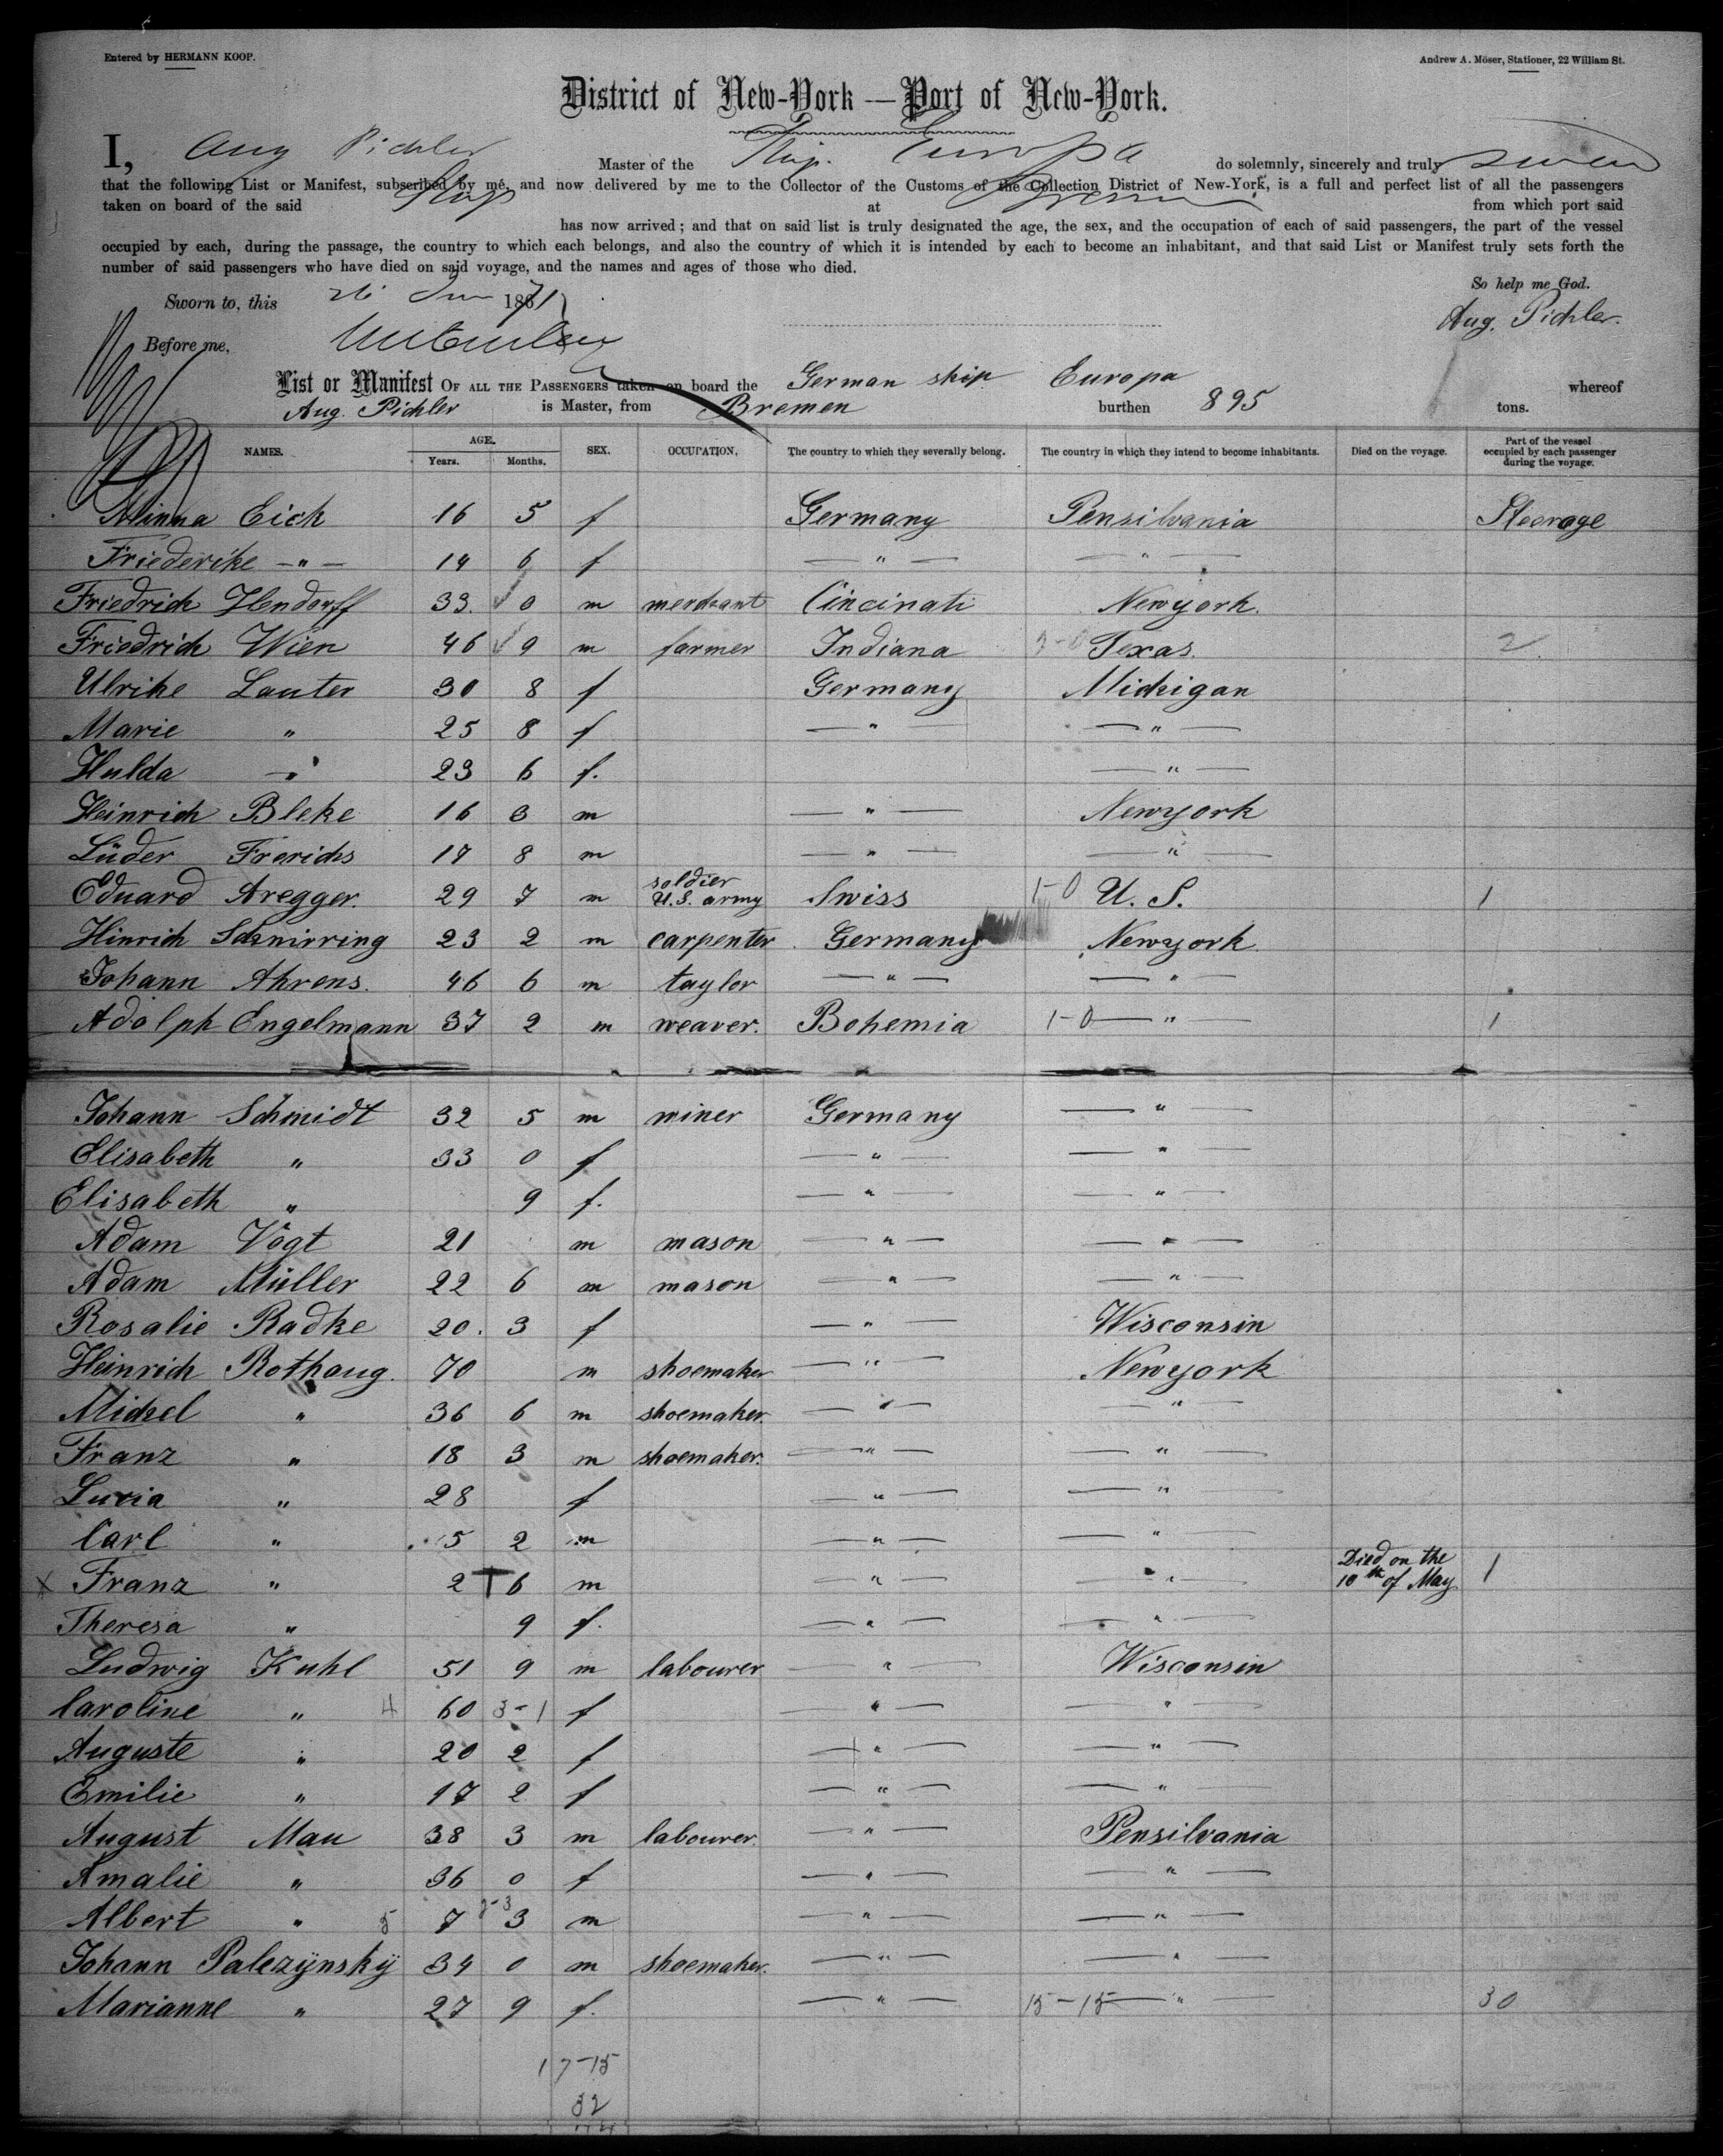 Entered by HERMANN KOOP.
Andrew A. Möser, Stationer, 22 William St.
District of New-York — Port of New-York.
I, Aug Pichler Master of the Ship. Europa do solemnly, sincerely and truly swear
that the following List or Manifest, subscribed by me, and now delivered by me to the Collector of the Customs of the Collection District of New-York, is a full and perfect list of all the passengers
taken on board of the said Ship at Bremen from which port said
has now arrived; and that on said list is truly designated the age, the sex, and the occupation of each of said passengers, the part of the vessel
occupied by each, during the passage, the country to which each belongs, and also the country of which it is intended by each to become an inhabitant, and that said List or Manifest truly sets forth the
number of said passengers who have died on said voyage, and the names and ages of those who died.
So help me God.
Sworn to, this 26 1871
Aug. Pichler.
Before me,
List or Manifest OF ALL THE PASSENGERS taken on board the German ship Europa whereof
Aug. Pichler is Master, from Bremen burthen 895 tons.
NAMES. AGE. Years. Months. SEX. OCCUPATION. The country to which they severally belong. The country in which they intend to become inhabitants. Died on the voyage. Part of the vessel occupied by each passenger during the voyage.
Minna Eick 16 5 f Germany Pensilvania Steerage
Friederike — " — 14 6 f — " — — " —
Friedrich Hendorff 33. 0 m merchant Cincinati Newyork.
Friedrich Wien 46 9 m farmer Indiana Texas. 2
Ulrike Lauter 30 8 f Germany Michigan
Marie " 25 8 f — " — — " —
Hulda " 23 6 f. — " —
Heinrich Bleke 16 3 m — " — Newyork
Lüder Frerichs 17 8 m — " — — " —
Eduard Aregger. 29 7 m soldier U.S. army Swiss 1-0 U. S. 1
Hinrich Schnirring 23 2 m carpenter Germany Newyork
Johann Ahrens. 46 6 m taylor — " — — " —
Adolph Engelmann 37 2 m weaver. Bohemia 1-0 — " — 1
Johann Schmidt 32 5 m miner Germany — " —
Elisabeth " 33 0 f — " — — " —
Elisabeth " 9 f. — " — — " —
Adam Vogt 21 m mason — " — — " —
Adam Müller 22 6 m mason — " — — " —
Rosalie Radke 20. 3 f — " — Wisconsin
Heinrich Rothaug. 70 m shoemaker — " — Newyork
Michel " 36 6 m shoemaker. — " — — " —
Franz " 18 3 m shoemaker. — " — — " —
Lucia " 28 f — " — — " —
Carl " 5 2 m — " — — " —
x Franz " 2 † 6 m — " — — " — Died on the 10th of May 1
Theresa " 9 f. — " — — " —
Ludwig Kuhl 51 9 m labourer — " — Wisconsin
Caroline " 4 60 3-1 f — " — — " —
Auguste " 20 2 f — " — — " —
Emilie " 17 2 f — " — — " —
August Mau 38 3 m labourer. — " — Pensilvania
Amalie " 36 0 f — " — — " —
Albert " 5 7 3 m — " — — " —
Johann Palezÿnskÿ 34 0 m shoemaker. — " — — " —
Marianne " 27 9 f. — " — 15-15 — " — 30
17-15
32